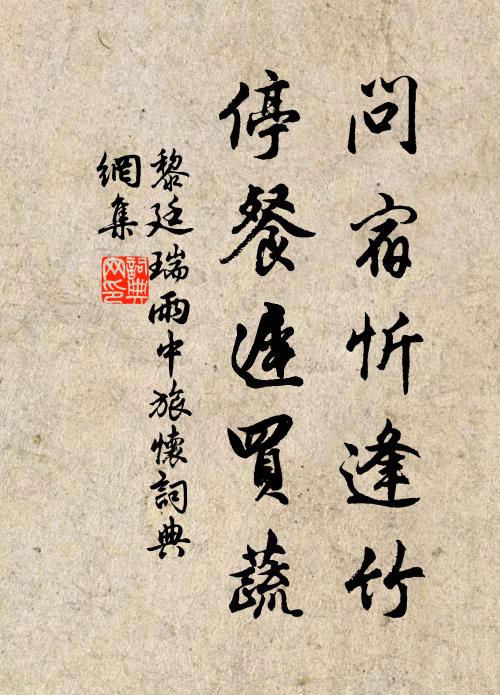 問宿忻逢竹
停餐遲買蔬
黎廷瑞雨中旅懷詞典
網集
詞典
网印